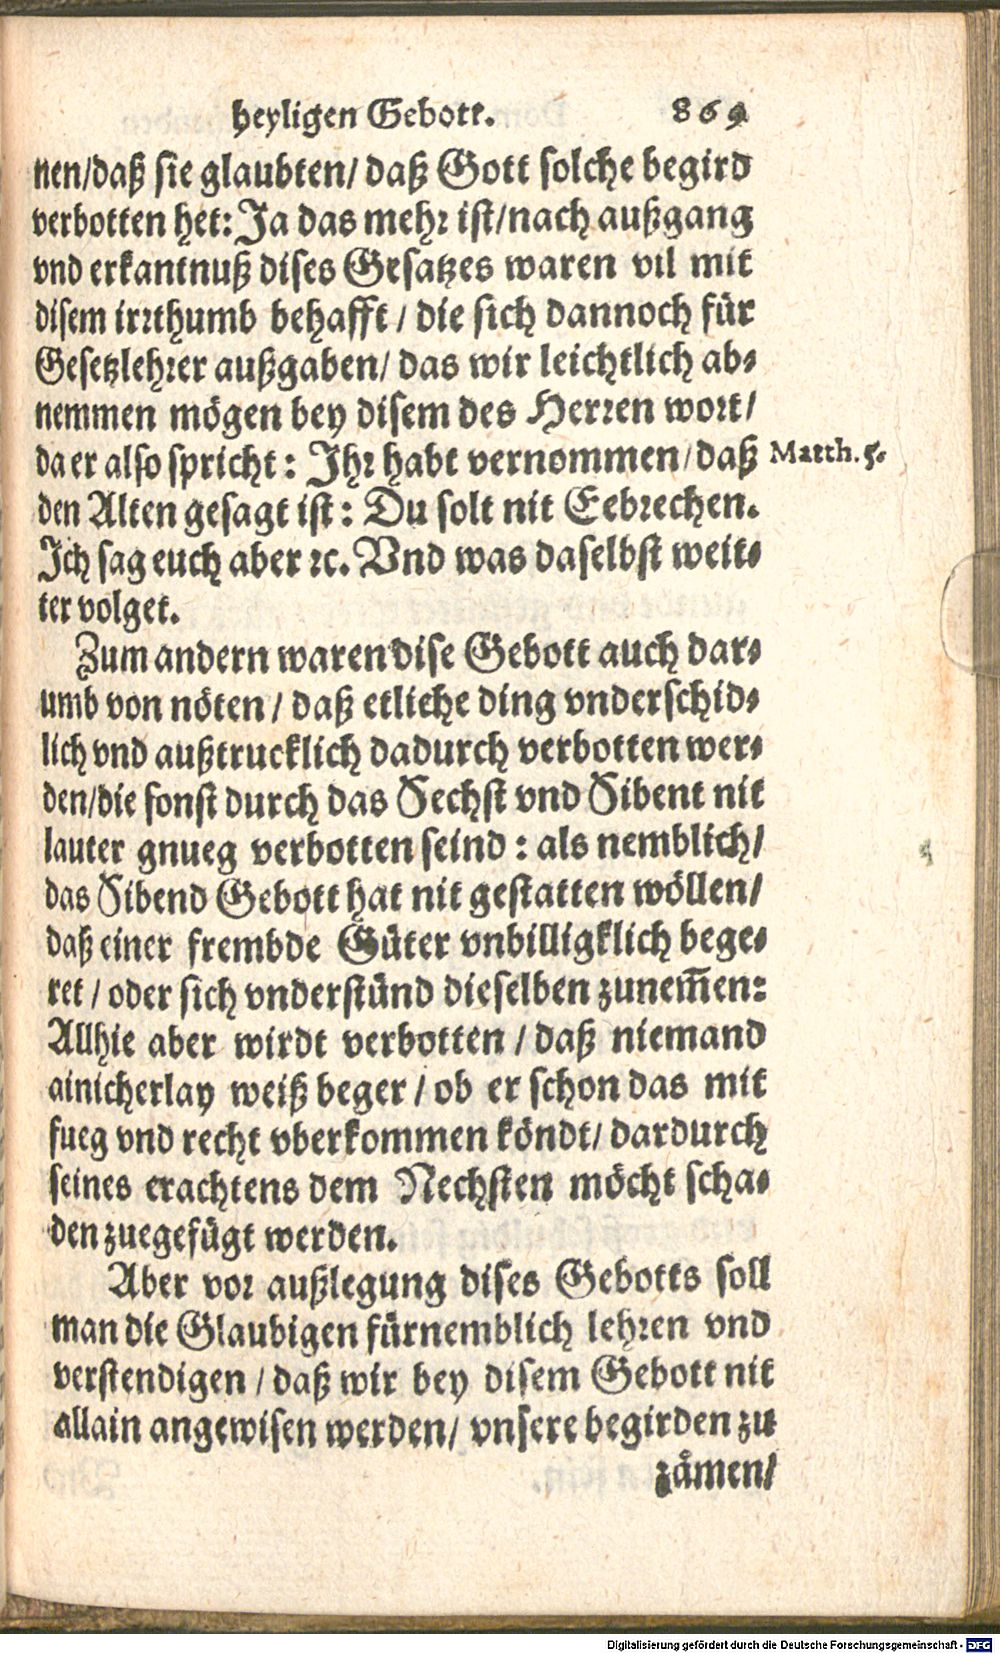 heyligen Gebott. 869
nen/daß sie glaubten/ daß Gott solche begird
verbotten het: Ja das mehr ist/nach außgang
vnd erkantnuß dises Gesatzes waren vil mit
disem irrthumb behafft / die sich dannoch für
Gesetzlehrer außgaben/ das wir leichtlich ab-
nemmen mögen bey disem des Herren wort/
da er also spricht: Ihr habt vernommen/daß
Matth. 5.
den Alten gesagt ist: Du solt nit Eebrechen.
Ich sag euch aber ꝛc. Vnd was daselbst weit-
ter volget.
Zum andern waren dise Gebott auch dar-
umb von nöten / daß etliche ding vnderschid-
lich vnd außtrucklich dadurch verbotten wer-
den/die sonst durch das Sechst vnd Sibent nit
lauter gnueg verbotten seind: als nemblich/
das Sibend Gebott hat nit gestatten wöllen/
daß einer frembde Güter vnbilligklich bege-
ret / oder sich vnderstünd dieselben zunem̄en:
Allhie aber wirdt verbotten / daß niemand
ainicherlay weiß beger / ob er schon das mit
fueg vnd recht vberkommen köndt/ dardurch
seines erachtens dem Nechsten möcht scha-
den zuegefügt werden.
Aber vor außlegung dises Gebotts soll
man die Glaubigen fürnemblich lehren vnd
verstendigen / daß wir bey disem Gebott nit
allain angewisen werden/ vnsere begirden zu
zämen/
Digitalisierung gefördert durch die Deutsche Forschungsgemeinschaft - DFG